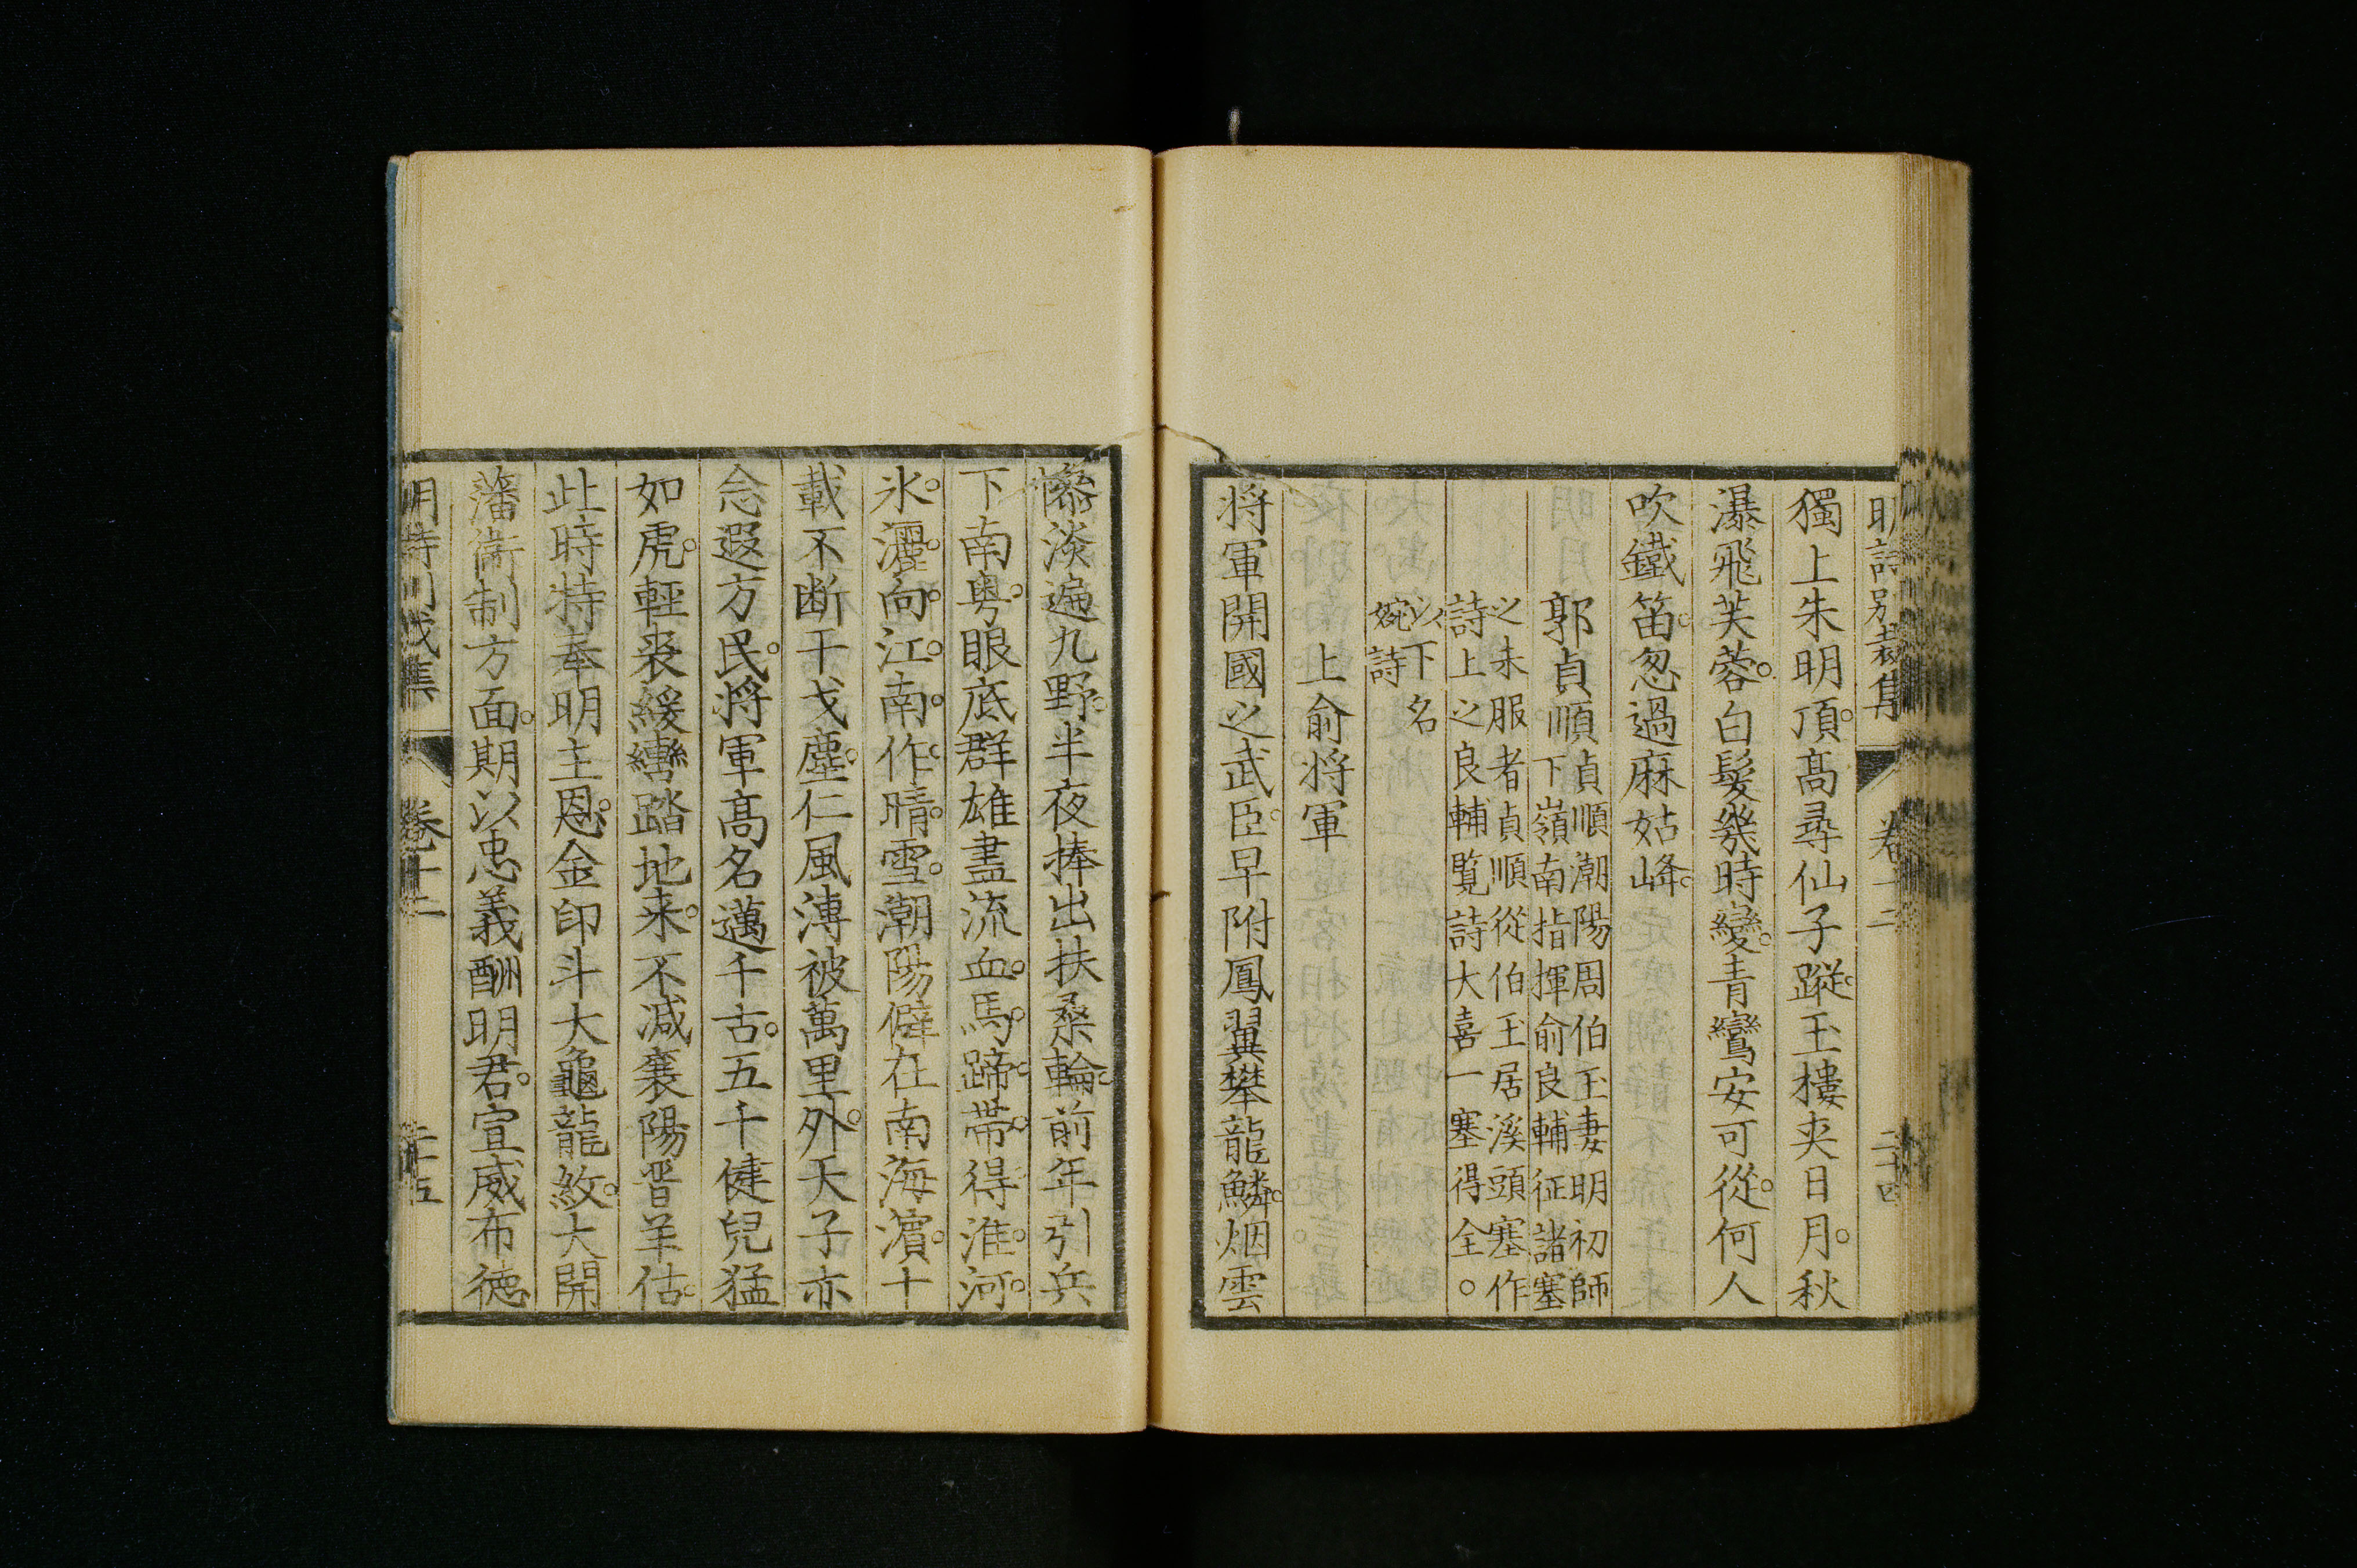 明詩別裁集 卷十二 二十四
獨上朱明頂。高尋仙子蹤。玉樓夾日月。秋
瀑飛芙蓉。白髮幾時變。青鸞安可從。何人
吹鐵笛。忽過麻姑峰。
郭貞順貞順潮陽周伯玉妻明初師
下嶺南指揮俞良輔征諸塞
之未服者貞順從伯玉居溪頭塞作
詩上之良輔覽詩大喜一塞得全。
以下名
婉詩
上俞将軍
将軍開國之武臣。早附鳳翼攀龍鱗。烟雲
慘淡遍九野。半夜捧出扶桑輪。前年引兵
下南粵。眼底群雄盡流血。馬蹄帶得淮河。
氷。灑向江南作晴雪。潮陽僻在南海濱。十
載不断干戈塵。仁風溥被萬里外。天子亦
念遐方民。将軍高名邁千古。五千健兒猛
如虎。輕裘緩轡踏地来。不減襄陽晋羊估。
此時特奉明主恩。金印斗大龜龍紋。大開
藩衛制方面。期以忠義酬明君。宣威布徳
明詩別裁集 卷十二 二十五